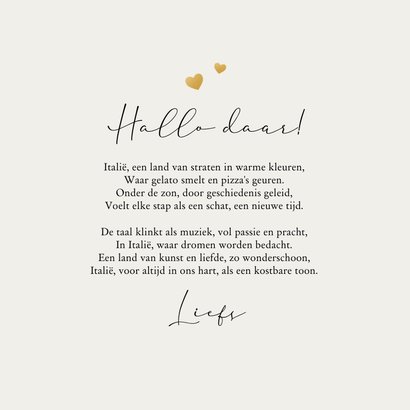 Hallo daar!
Italië, een land van straten in warme kleuren,
Waar gelato smelt en pizza's geuren.
Onder de zon, door geschiedenis geleid,
Voelt elke stap als een schat, een nieuwe tijd.
De taal klinkt als muziek, vol passie en pracht,
In Italië, waar dromen worden bedacht.
Een land van kunst en liefde, zo wonderschoon,
Italië, voor altijd in ons hart, als een kostbare toon.
Liefs